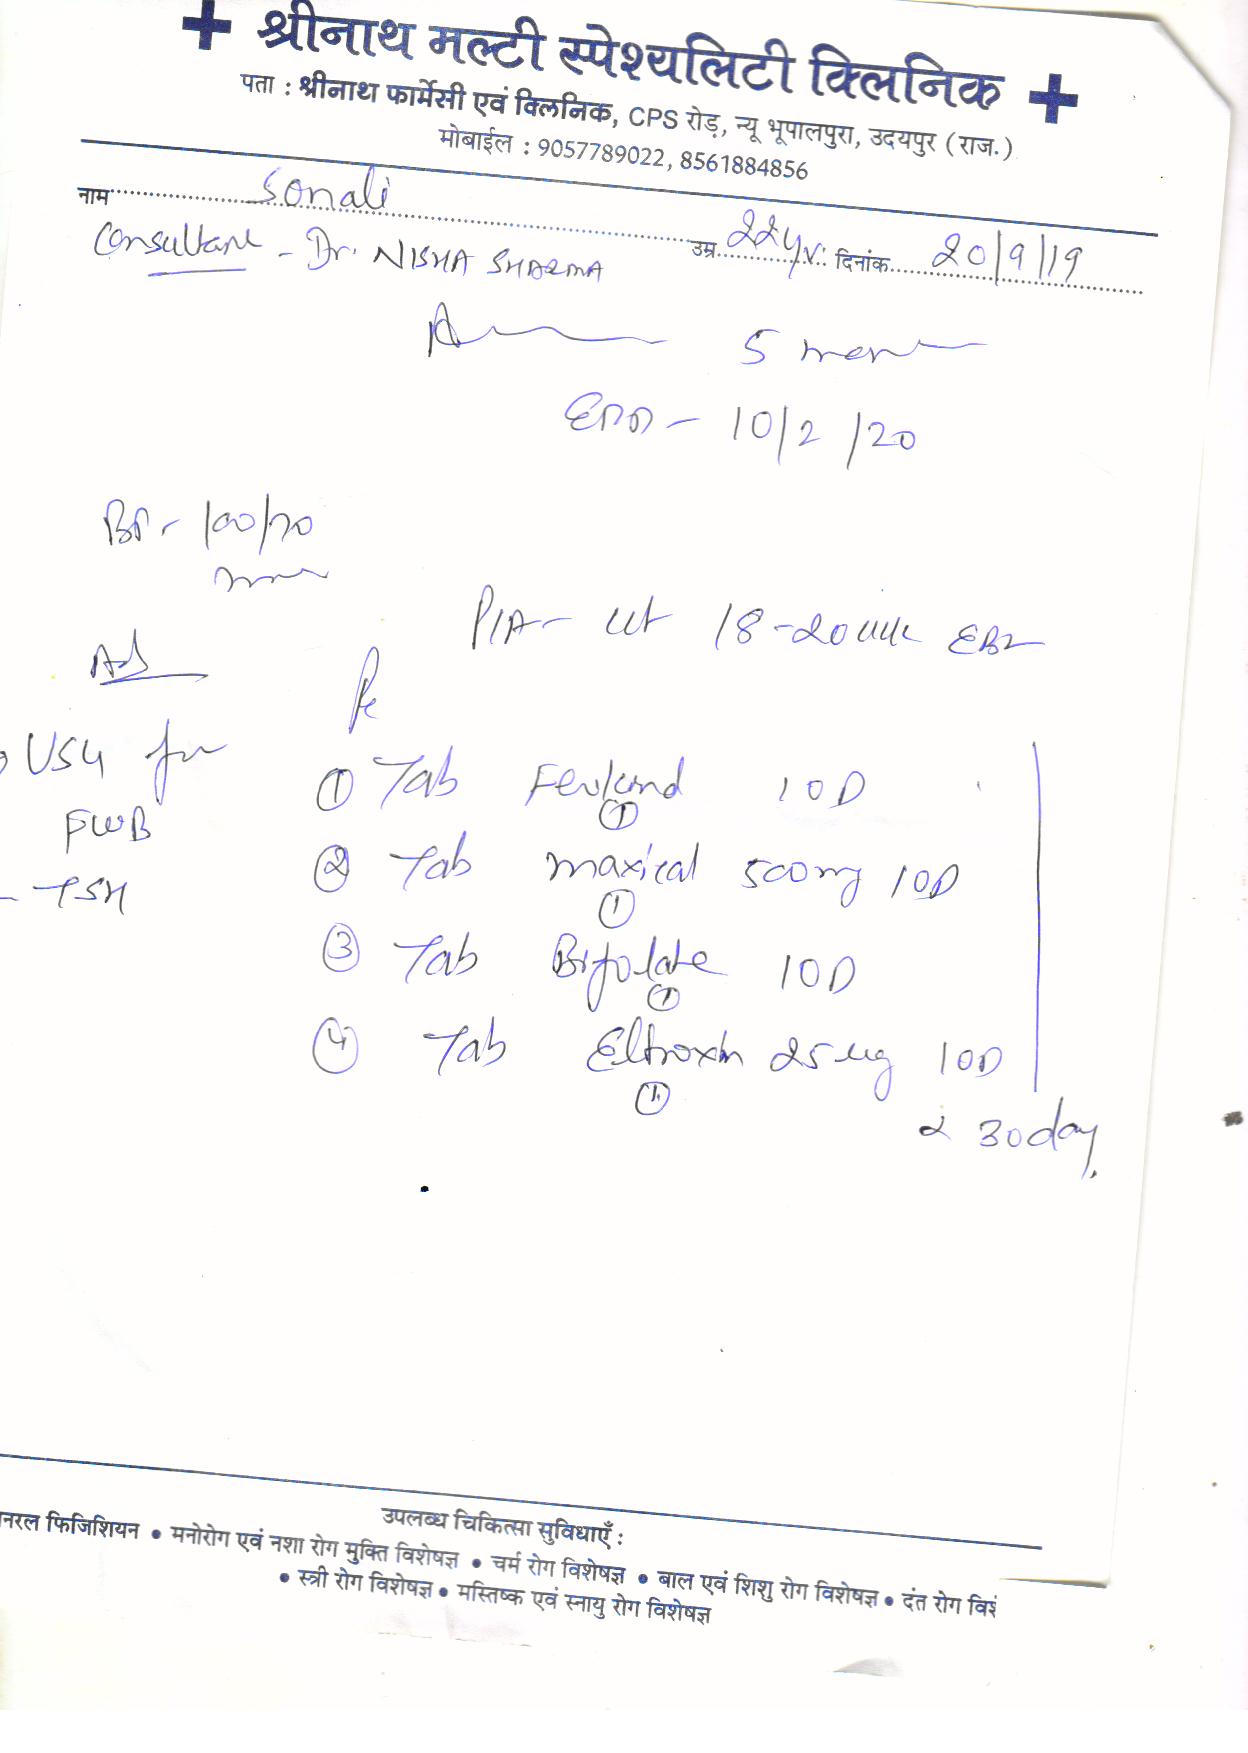 श्रीनाथ मल्टी स्पेश्यलिटी क्लिनिक
पता : श्रीनाथ फार्मेसी एवं क्लिनिक, CPS रोड़, न्यू भूपालपुरा, उदयपुर (राज.)
मोबाईल : 9057789022, 8561884856
नाम Sonali उम्र 22yr. दिनांक 20/9/19
Consultant - Dr. NISHA SHARMA
5 mon
EDD - 10/2/20
BP - 100/70
P/A - ut 18-20 wk
Ad
Rx
USG for
FWB
- TSH
① Tab 10D
①
② Tab Maxical 500mg 10D
①
③ Tab Bifolate 10D
①
④ Tab Eltroxin 25 ug 10D
①
x 30 day
उपलब्ध चिकित्सा सुविधाएँ :
नरल फिजिशियन • मनोरोग एवं नशा रोग मुक्ति विशेषज्ञ • चर्म रोग विशेषज्ञ • बाल एवं शिशु रोग विशेषज्ञ • दंत रोग विशे
• स्त्री रोग विशेषज्ञ • मस्तिष्क एवं स्नायु रोग विशेषज्ञ